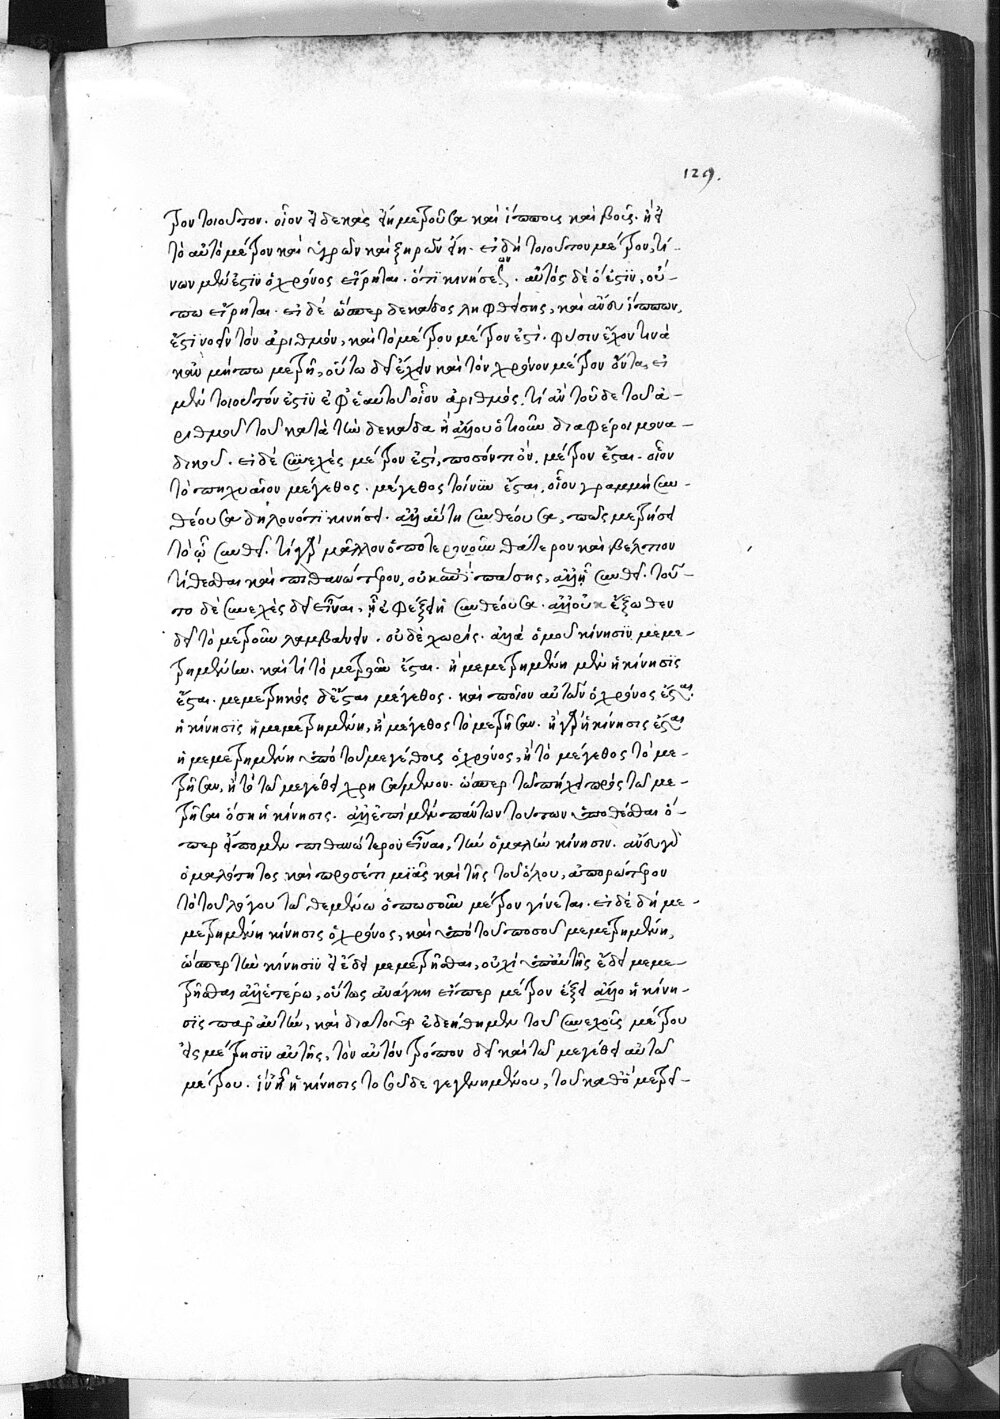 τρον τοιοῦτον. οἷον εἰ δεκὰς εἴη μετροῦσα καὶ ἵππους καὶ βοῦς. ἢ εἰ
τὸ αὐτὸ μέτρον καὶ ὑγρῶν καὶ ξηρῶν εἴη. εἰ δὴ τοιοῦτον μέτρον, τί-
νων μέν ἐστιν ὁ χρόνος εἴρηται. ὅτι κινήσεων. αὐτὸς δὲ ὅ ἐστιν, οὔ-
πω εἴρηται. εἰ δὲ ὥσπερ δεκάδος ληφθείσης, καὶ ἄνευ ἵππων,
ἔστι νοεῖν τὸν ἀριθμόν, καὶ τὸ μέτρον μέτρον ἐστὶ. φύσιν ἔχον τινὰ
κἂν μήπω μετρῇ, οὕτω δεῖ ἔχειν καὶ τὸν χρόνον μέτρον ὄντα, εἰ
μὲν τοιοῦτόν ἐστιν ἐφ' ἑαυτοῦ οἷον ἀριθμός, τί ἂν τοῦδε τοῦ ἀ-
ριθμοῦ τοῦ κατὰ τὴν δεκάδα ἢ ἄλλου ὁτιοῦν διαφέροι μονα-
δικοῦ. εἰ δὲ συνεχὲς μέτρον ἐστὶ, ποσόν τι ὂν. μέτρον ἔσται. οἷον
τὸ πηχυαῖον μέγεθος. μέγεθος τοίνυν ἔσται, οἷον γραμμὴ συν-
θέουσα δηλονότι κινήσει. ἀλλ' αὕτη συνθέουσα, πῶς μετρήσει
τὸ ᾧ συνθεῖ. τί γὰρ μᾶλλον ὁποτερονοῦν θάτερον καὶ βέλτιον
τίθεσθαι καὶ πιθανώτερον, οὐκ ἐπὶ πάσης, ἀλλ' ᾗ συνθεῖ. τοῦ-
το δὲ συνεχὲς δεῖ εἶναι, ἢ ἐφέξει ἡ συνθέουσα. ἀλλ' οὐκ ἔξωθεν
δεῖ τὸ μετροῦν λαμβάνειν. οὐδὲ χωρίς. ἀλλὰ ὁμοῦ κίνησιν μεμε-
τρημένην. καὶ τί τὸ μετροῦν ἔσται. ἢ μεμετρημένη μὲν ἡ κίνησις
ἔσται. μεμετρηκὸς δ' ἔσται μέγεθος. καὶ ποῖον αὐτῶν ὁ χρόνος ἔσται.
ἡ κίνησις ἡ μεμετρημένη, ἢ μέγεθος τὸ μετρῆσαν. ἢ γὰρ ἡ κίνησις ἔσται
ἡ μεμετρημένη ὑπὸ τοῦ μεγέθους ὁ χρόνος, ἢ τὸ μέγεθος τὸ με-
τρῆσαν, ἢ τὸ τῷ μεγέθει χρησάμενον. ὥσπερ τῷ πήχει πρὸς τῷ με-
τρῆσαι ὅση ἡ κίνησις. ἀλλ' ἐπὶ μὲν πάντων τούτων ὑποθέσθαι ὅ-
περ εἴπομεν πιθανώτερον εἶναι, τὴν ὁμαλὴν κίνησιν. ἄνευ γὰρ
ὁμαλότητος καὶ προσέτι μιᾶς καὶ τῆς τοῦ ὅλου, ἀπορώτερον
τὸ τοῦ λόγου τῷ θεμένῳ ὁπωσοῦν μέτρον γίνεται. εἰ δὲ δὴ με-
μετρημένη κίνησις ὁ χρόνος, καὶ ὑπὸ τοῦ ποσοῦ μεμετρημένη,
ὥσπερ τὴν κίνησιν εἰ ἔδει μεμετρῆσθαι, οὐχὶ ὑπ' αὐτῆς ἔδει μεμε-
τρῆσθαι ἀλλ' ἑτέρῳ, οὕτως ἀνάγκη εἴπερ μέτρον ἕξει ἄλλο ἡ κίνη-
σις παρ' αὐτὴν, καὶ διὰ τοῦτο ἐδεήθημεν τοῦ συνεχοῦς μέτρου
εἰς μέτρησιν αὐτῆς, τὸν αὐτὸν τρόπον δεῖ καὶ τῷ μεγέθει αὐτῷ
μέτρου. ἵν' ᾖ ἡ κίνησις τοσοῦδε γεγενημένου, τοῦ καθ' ὃ μετρεῖ-